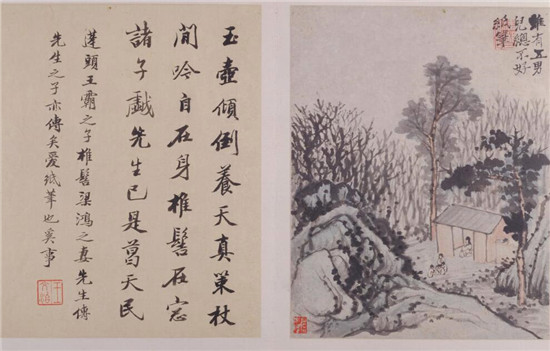 玉壺傾倒養天真策杖
閒吟自在身椎髻在窓
諸子戲先生已是葛天民
蓬頭王霸之子椎髻梁鴻之妻先生傳
先生之子亦傳矣愛紙筆也奚事
雖有五男
兒總不好
紙筆